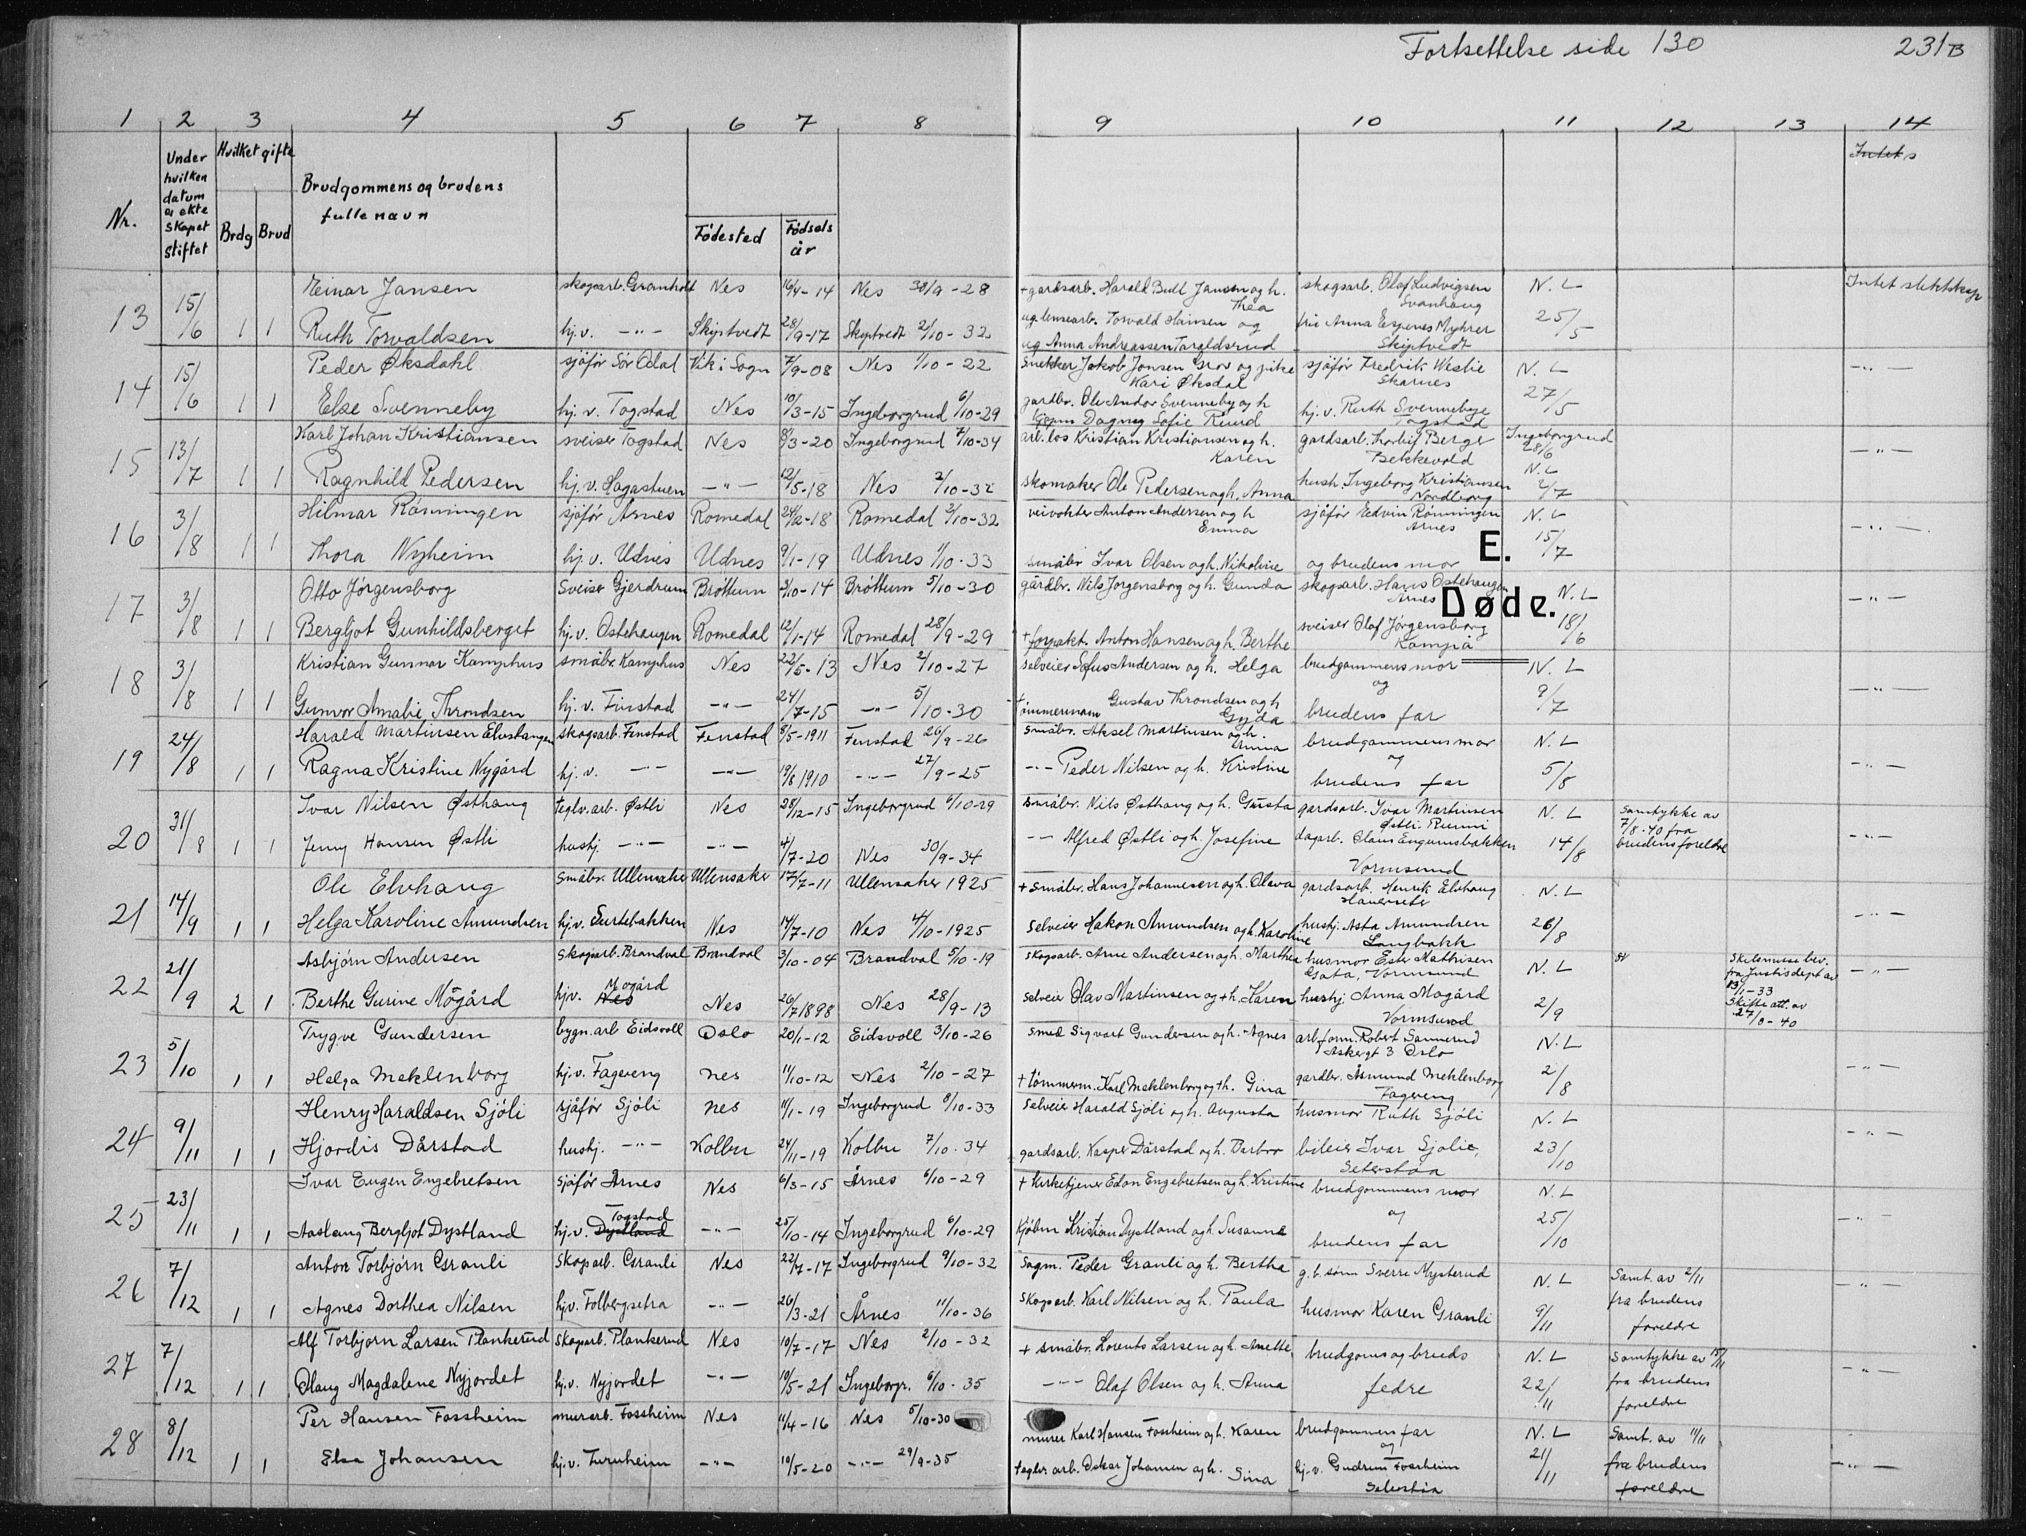 Fortsettelse side 130
231B
1 2 3 4 5 6 7 8 9 10 11 12 13 14
Nr.
Under hvilken datum er ekteskapet stiftet
Hvilket gifte
Brdg Brud
Brudgommens og brudens fulle navn
Fødested
Fødsels år
E.
Døde.
13 15/6 1 1
Einar Jansen skogsarb. Granholt Nes 16/4-14 Nes 30/9-28 + gardsarb. Harald Bull Jansen og h. Thea skogsarb. Olaf Ludvigsen Svanhaug N.L Intet slektskap
Ruth Torvaldsen hj.v. -"- Skiptvedt 28/9-17 Skiptvedt 2/10-32 ug. lensearb. Torvald Hansen og ug. Anna Andreassen Taraldsrud fru Anna Espenes Myhrer Skiptvedt 25/5
14 15/6 1 1
Peder Øksdahl sjåfør Sør Odal Vik i Sogn 7/9-08 Nes 1/10-22 Snekker Jakob Jonsen Grov og pike Kari Øksdal sjåfør Fredrik Westie Skarnes N.L -"-
Else Svenneby hj.v. Togstad Nes 10/3-15 Ingeborgrud 6/10-29 gardbr. Ole Andor Svenneby og h Dagny Sofie Ruud hj.v. Ruth Svennebye Togstad 27/5
15 13/7 1 1
Karl Johan Kristiansen sveiser Togstad Nes 8/3-20 Ingeborgrud 7/10-34 arb. los Kristian Kristiansen og h. Karen gardsarb. Thorleif Berge Bekkevold Ingeborgrud 28/6 -"-
Ragnhild Pedersen hj.v. Hagastuen -"- 12/5-18 Nes 2/10-32 skomaker Ole Pedersen og h. Anna hush Ingeborg Kristiansen Nordborg N.L 2/7
16 3/8 1 1
Hilmar Rønningen sjåfør Årnes Romedal 24/2-18 Romedal 2/10-32 veivokter Anton Andersen og h Emma sjåfør Edvin Rønningen Årnes N.L -"-
Thora Nyheim hj.v. Udnes Udnes 9/1-19 Udnes 1/10-33 småbr Ivar Olsen og h. Nikoline og brudens mor 15/7
17 3/8 1 1
Otto Jørgensborg Sveiser Gjerdrum Brøttum 3/10-14 Brøttum 5/10-30 gårdbr. Nils Jørgensborg og h. Gunda skogsarb. Hans Østehaugen Årnes N.L -"-
Bergljot Gunhildsberget hj.v. Østehaugen Romedal 12/1-14 Romedal 28/9-29 + forpakt. Anton Hansen og h. Berthe sveiser Olaf Jørgensborg Kampå 18/6
18 3/8 1 1
Kristian Gunnar Kamphus småbr. Kamphus Nes 22/5-13 Nes 2/10-27 selveier Sofus Andersen og h. Helga brudgommens mor N.L
Gunvor Amalie Throndsen hj.v. Finstad -"- 24/7-15 -"- 5/10-30 + tømmermann Gustav Throndsen og h Gyda og brudens far 9/7 -"-
19 24/8 1 1
Harald Martinsen Elvstangen skogsarb. Fenstad Fenstad 8/5-1911 Fenstad 26/9-26 Småbr. Aksel Martinsen og h. Anna brudgommens mor N.L
Ragna Kristine Nygård hj.v. -"- -"- 19/8 1910 -"- 27/9-25 -"- Peder Nilsen og h. Kristine og brudens far 5/8 -"-
20 31/8 1 1
Ivar Nilsen Østhaug teglv. arb. Østli Nes 28/12-15 Ingeborgrud 6/10-29 småbr. Nils Østhaug og h. Gusta gardsarb. Ivar Martinsen Østli Runni N.L Samtykke av 7/8-40 fra brudens foreldre
Jenny Hansen Østli hushj. -"- -"- 4/7-20 Nes 30/9-34 -"- Alfred Østli og h. Josefine dagarb. Claus Engumsbakken Vormsund 14/8 -"-
21 14/9 1 1
Ole Elvhaug Småbr. Ullensaker Ullensaker 17/7-11 Ullensaker 1925 + småbr. Hans Johannesen og h. Olava gardsarb. Henrik Elvhaug N.L
Helga Karoline Amundsen hj.v. Surtebakken Nes 14/7-10 Nes 4/10-1925 Selveier Hakon Amundsen og h. Karoline hushj. Asta Amundsen Langbakk 26/8 -"-
22 21/9 2 1
Asbjørn Andersen Skogsarb. Brandval Brandval 3/10-04 Brandval 5/10-19 Skogsarb. Arne Andersen og h. Marthea husmor Ester Mathisen Gata, Vormsund N.L Skilsmisse bev. fra Justisdept av 13/1-33 Skifte att. av 27/8-40 -"-
Berthe Gurine Mogård hj.v. Mogård Nes 26/7 1898 Nes 28/9-13 selveier Olav Martinsen og + h. Karen hushj Anna Mogård Vormsund 2/9
23 5/10 1 1
Trygve Gundersen bygn. arb Eidsvoll Oslo 20/1-12 Eidsvoll 3/10-26 smed Sigvart Gundersen og h. Agnes arb. form. Robert Sannerud Askergt 3 Oslo N.L
Helga Meklenborg hj.v. Fagereng Nes 11/10-12 Nes 2/10-27 + tømmerm. Karl Meklenborg og + h. Gina gardbr. Åsmund Meklenborg Fagereng 2/8 -"-
24 9/11 1 1
Henry Haraldsen Sjøli sjåfør Sjøli Nes 11/1-19 Ingeborgrud 8/10-33 Selveier Harald Sjøli og h. Augusta husmor Ruth Sjøli N.L
Hjordis Dårstad hushj. -"- Kolbu 24/11-19 Kolbu 7/10-34 gardsarb. Kasper Dårstad og h. Barbro bileier Ivar Sjølie, Seterstøa 23/10 -"-
25 23/11 1 1
Ivar Eugen Engebretsen sjåfør Årnes Nes 6/3-15 Årnes 6/10-29 + kirketjener Edon Engebretsen og h. Kristine brudgommens mor N.L
Aaslaug Bergljot Dystland hj.v. Togstad Dystland -"- 25/10-14 Ingeborgrud 6/10-29 Kjøbm Kristian Dystland og h. Susanne og brudens far 25/10 -"-
26 7/12 1 1
Anton Torbjørn Granli Skogsarb. Granli Nes 22/7-17 Ingeborgrud 9/10-32 Sagm. Peder Granli og h. Bertha g.b. sønn Sverre Mysterud N.L Samt. av 2/11 fra brudens foreldre
Agnes Dorthea Nilsen hj.v. Folbergsetra -"- 26/3-21 Årnes 11/10-36 Skogsarb. Karl Nilsen og h. Paula husmor Karen Granli 9/11 -"-
27 7/12 1 1
Alf Torbjørn Larsen Plankerud Skogsarb. Plankerud Nes 10/7-17 Nes 2/10-32 + småbr. Lorents Larsen og h. Anette brudgoms og bruds N.L Samtykke av 15/11 fra brudens foreldre
Olaug Magdalene Nyjordet hj.v. Nyjordet -"- 10/5-21 Ingeborgr. 6/10-35 -"- Olaf Olsen og h. Anna fedre 22/11 -"-
28 8/12 1 1
Per Hansen Fossheim murarb. Fossheim Nes 11/4-16 Nes 5/10-30 murer Karl Hansen Fossheim og h. Karen brudgommens far N.L Samt. av 11/11 fra brudens foreldre
Elsa Johansen hj.v. Furuheim -"- 10/5-20 -"- 29/9-35 teglv. arb. Oskar Johansen og h. Sina og hj.v. Gudrun Fossheim Seterstøa 21/11 -"-